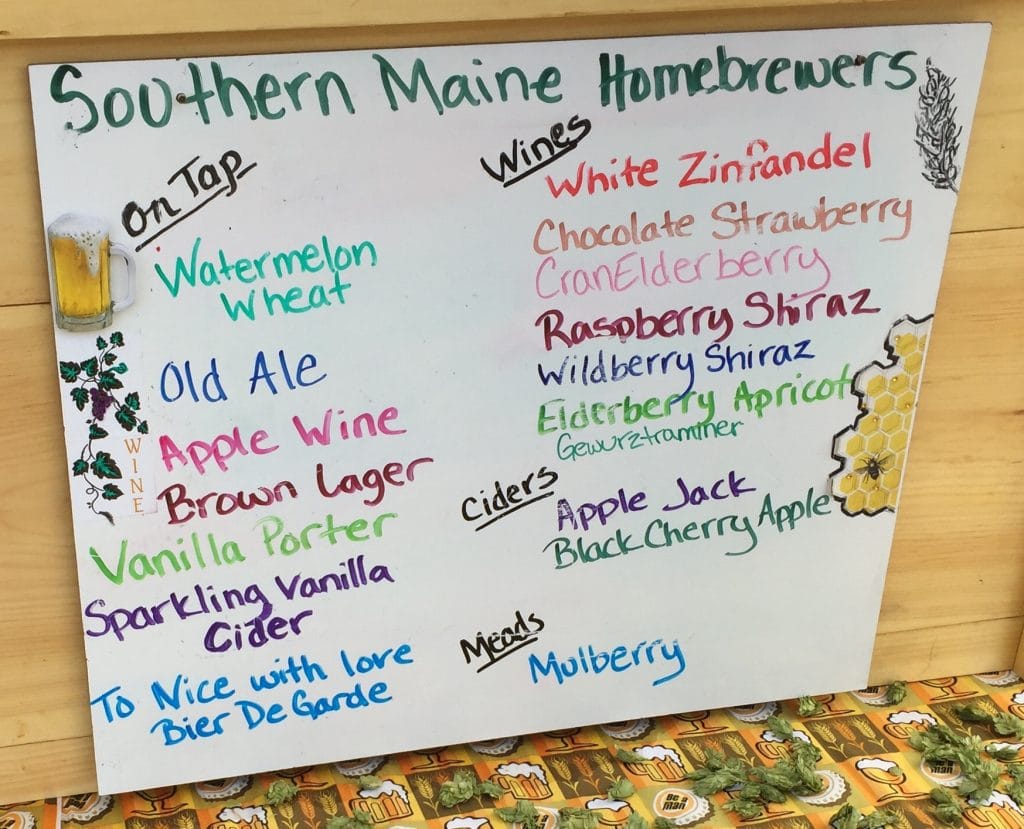 Southern Maine Homebrewers
On Tap
Watermelon
Wheat
Old Ale
Apple Wine
Brown Lager
Vanilla Porter
Sparkling Vanilla
Cider
To Nice with love
Bier De Garde
WINE
Wines
White Zinfandel
Chocolate Strawberry
CranElderberry
Raspberry Shiraz
Wildberry Shiraz
Elderberry Apricot
Gewurztraminer
Ciders
Apple Jack
Black Cherry Apple
Meads
Mulberry
Be a
Man
Be a
Man
Be a
Man